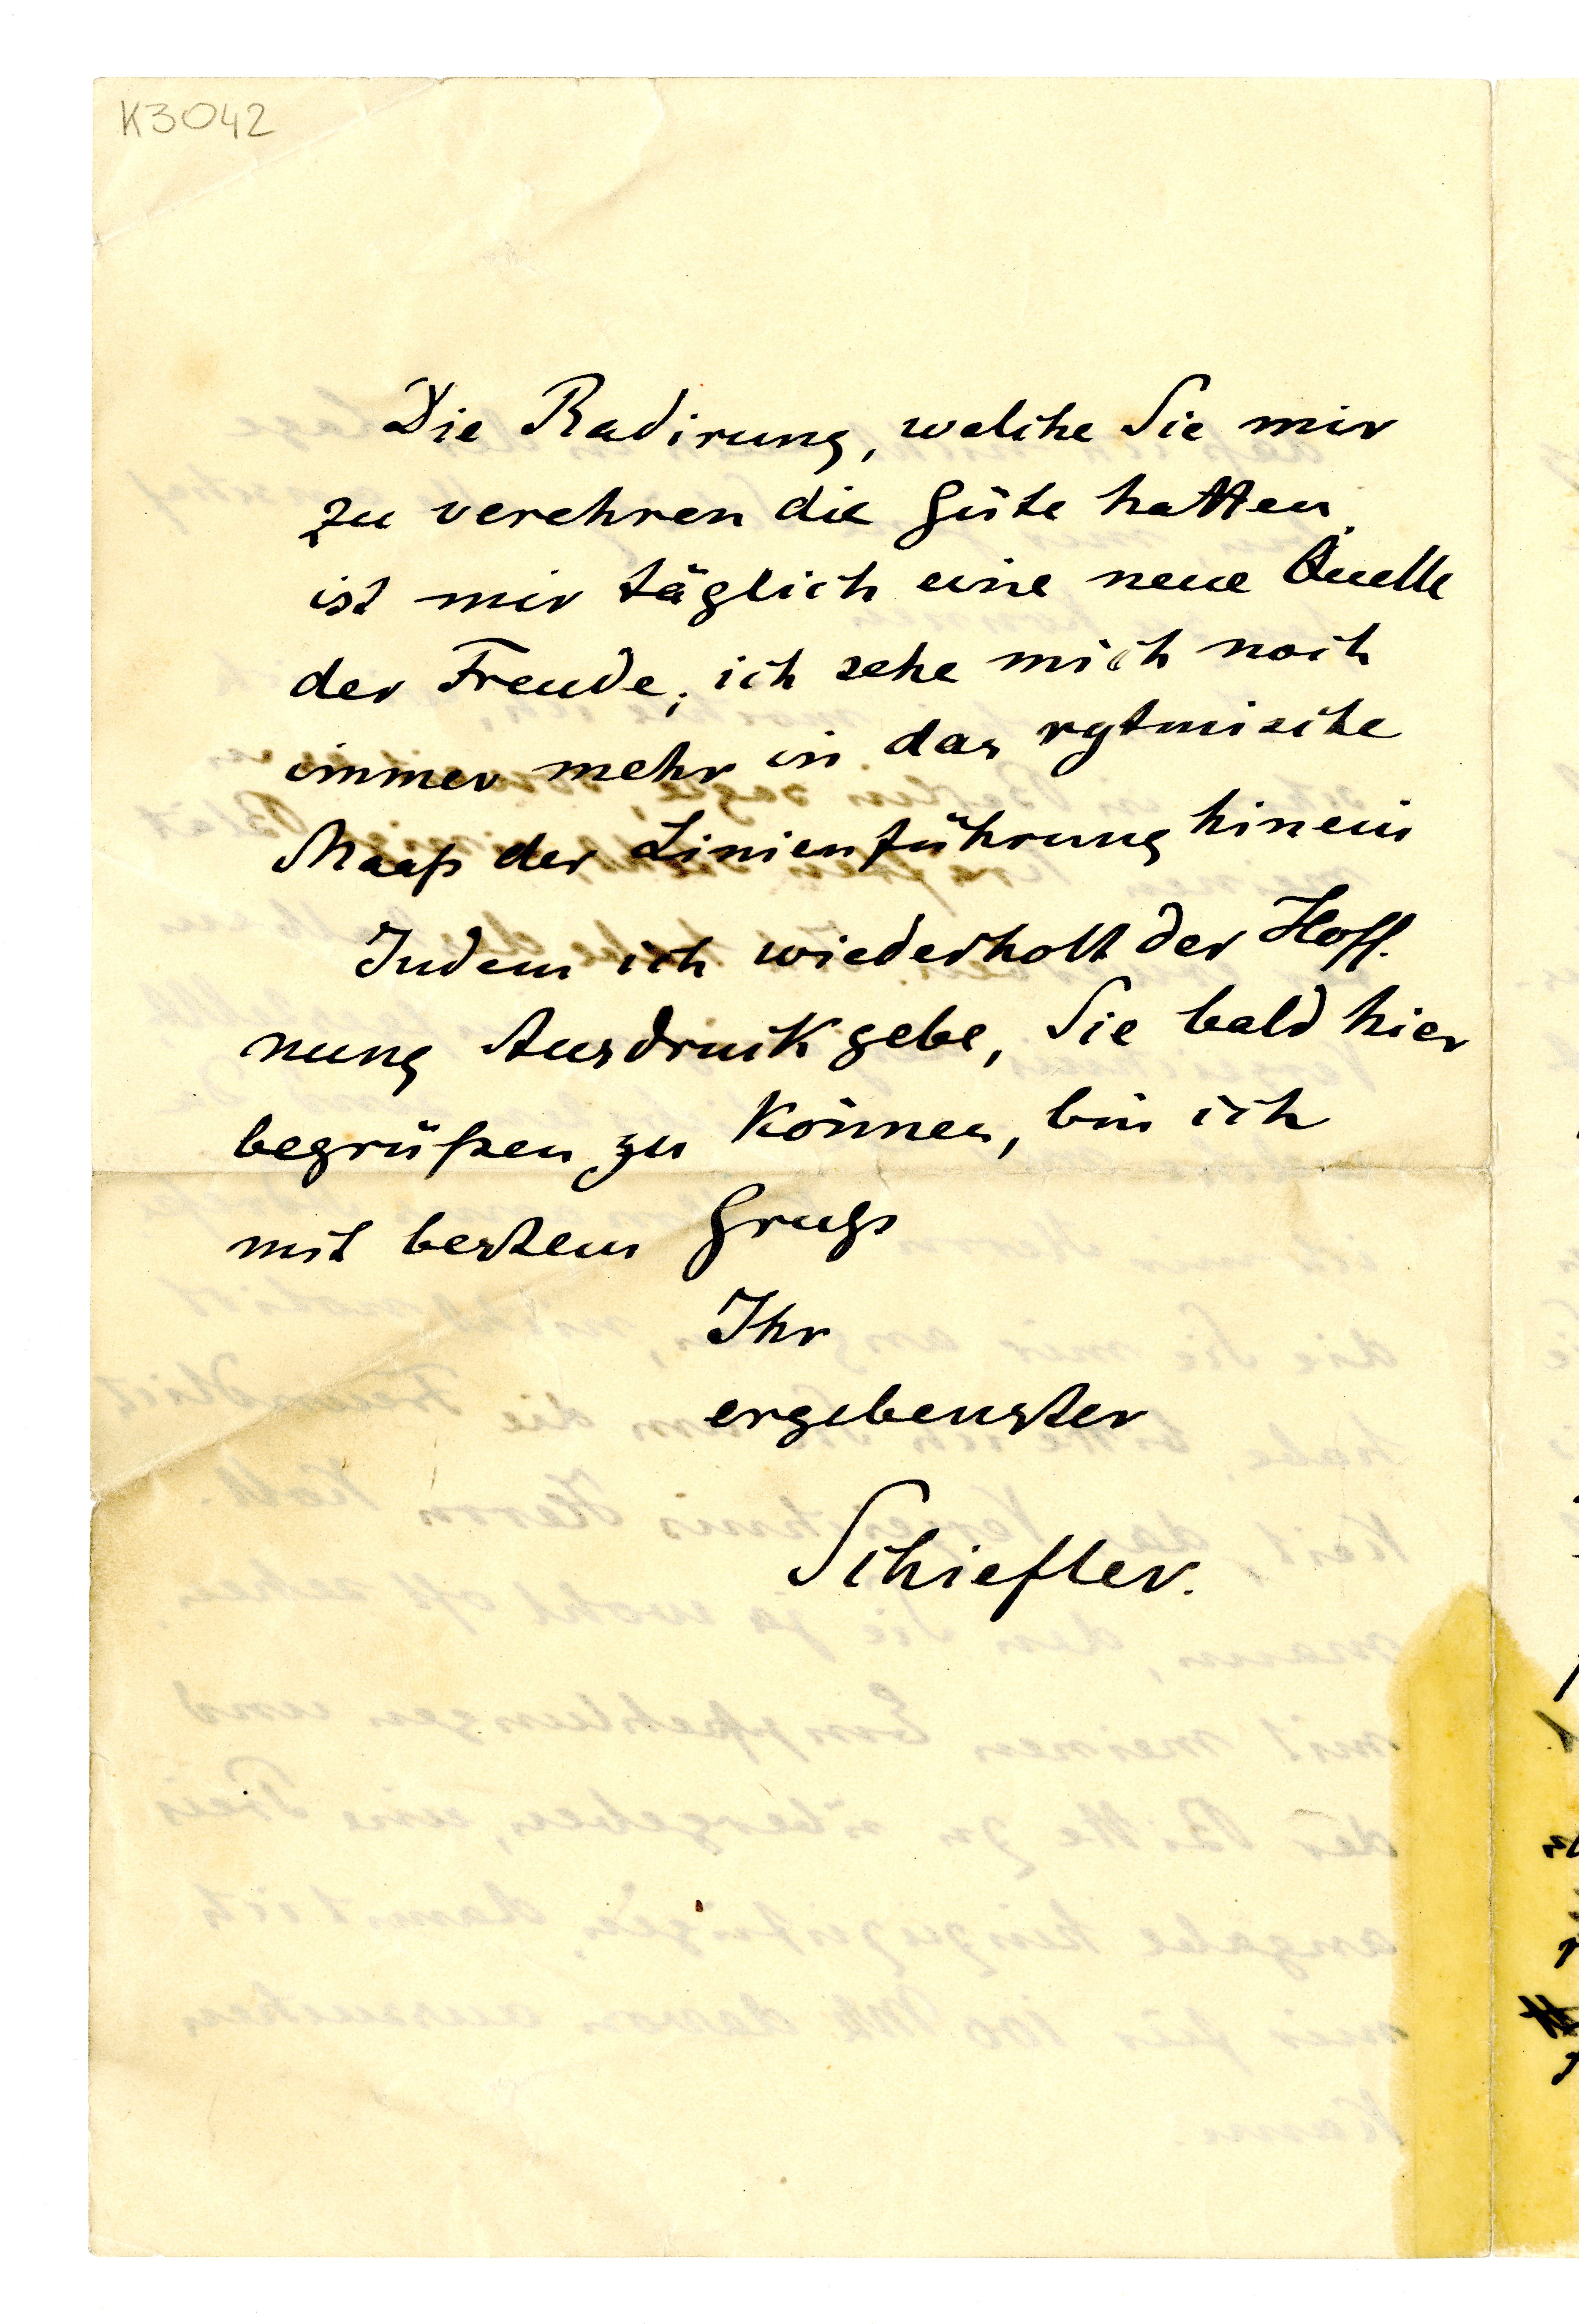 K3042
Die Radirung, welche Sie mir
zu verehren die Güte hatten,
ist mir täglich eine neue Quelle
der Freude; ich sehe mich noch
immer mehr in das rytmische
Maaß der Linienführung hinein
Indem ich wiederholt der Hoff-
nung Ausdruck gebe, Sie bald hier
begrüßen zu können, bin ich
mit bestem Gruß
Ihr
ergebenster
Schiefler.